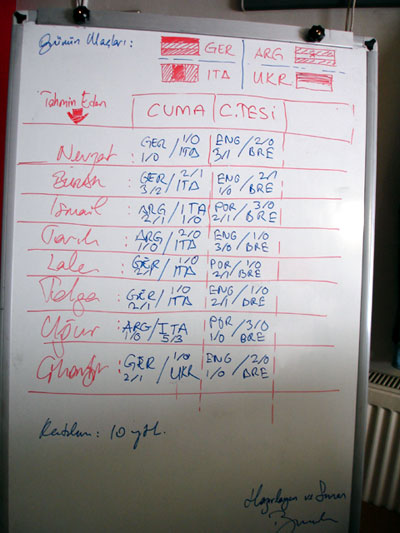 Günün Maçları: GER ARG
ITA UKR
Tahmin Eden CUMA C.TESİ
Nevzat : GER 1/0 / 1/0 ITA ENG 3/1 / 2/0 BRE
: GER 3/2 / 2/1 ITA ENG 1/0 / 2/1 BRE
İsmail : ARG 2/1 / ITA 1/0 POR 2/1 / 3/0 BRE
Tarık : ARG 1/0 / 2/0 ITA ENG 3/0 / 1/0 BRE
Lale : GER 2/1 / 1/0 ITA POR 2/1 / 1/0 BRE
Tolga : GER 2/1 / 1/0 ITA ENG 2/1 / 1/0 BRE
Uğur : ARG 1/0 / ITA 5/3 POR 1/0 / 3/0 BRE
: GER 2/1 / 1/0 UKR ENG 1/0 / 2/0 BRE
Katılım : 10 ytl.
Hazırlayan ve Sunan